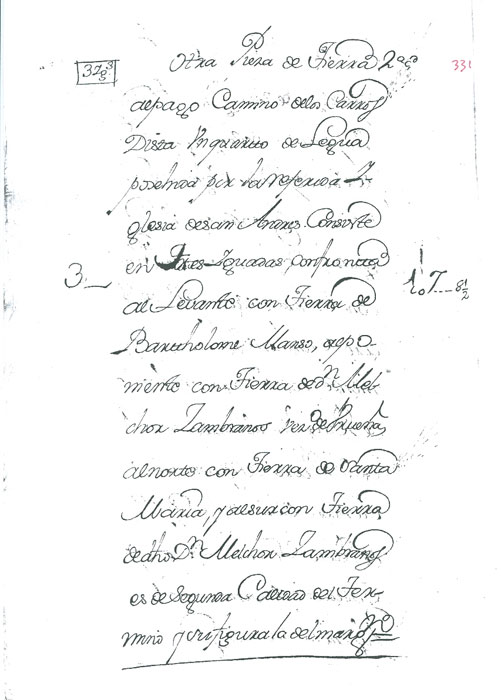 37,,3
8
Otra Pieza de Tierra 2ª
331
al pago Camino delos Carros
Dista un quarto de Legua
poseheida por la referida I-
glesia desan Andres Consiste
en tres Iguadas confronta
3._
al Levante con Tierra de
Bartholome Manso, al po-
niente con Tierra de dn Mel-
chor Zambranos vezº de Brueña,
al norte con Tierra de Santa
Maria, y al sur con Tierra
de dho Dn Melchor Zambranos
es de Segunda Calidad del Ter-
mino y su figura la del margn